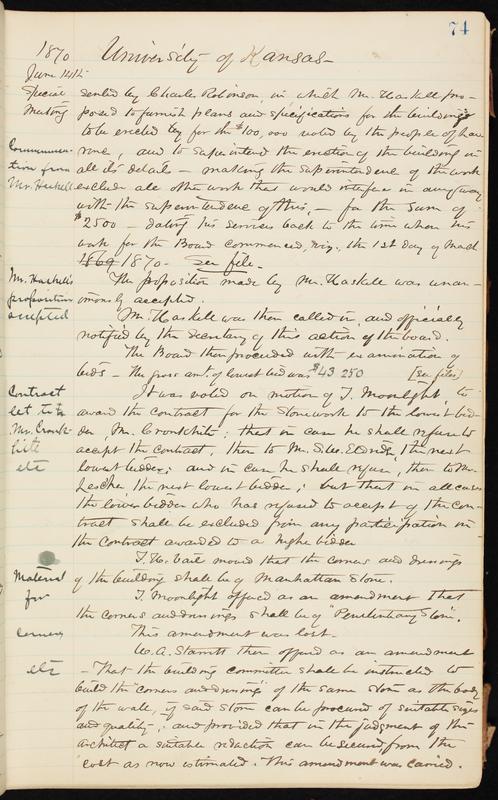 74
1870 University of Kansas-
June 14th
Special
Meeting
sented by Charles Robinson, in which Mr. Haskell pro-
posed to furnish plans and specifications for the buildings
to be erected by for the $100,000 voted by the people of Law
rence, and to superintend the erection of the building in
all its details - making the superintendence of the work
exclude all other work that would interfere in any way
with the superintendence of this, - for the sum of
$2500 - dating his services back to the time when his
work for the Board commenced, viz., the 1st day of March
1869 1870 - See file.
Communica-
tion from
Mr. Haskell
The proposition made by Mr. Haskell was unan-
imously accepted.
Mr. Haskell's
proposition
accepted
Mr. Haskell was then called in, and officially
notified by the Secretary of this action of the board.
The Board then proceeded with examination of
bids - The gross amt. of lowest bid was $43 250 [See files]
Contract
let to
Mr. Cronk-
hite
etc
It was voted on motion of T. Moonlight, to
award the contract for the stonework to the lowest bid-
der, Mr. Cronkhite; that in case he shall refuse to
accept the contract, then to Mr. Geo. Eldridge, the next
lowest bidder; and in case he shall refuse, then to Mr.
the next lowest bidder; but that in all cases
the lower bidder who has refused to accept of the con-
tract shall be excluded from any participation in
the contract awarded to a higher bidder
T. H. Vail moved that the corners and dressings
of the building shall be of Manhattan Stone.
Material
for
corners
etc
T. Moonlight offered as an amendment that
the corners and dressings shall be of "Penitentiary" Stone.
This amendment was lost-
W. A. Starrett then offered as an amendment
- That the building committee shall be instructed to
build the corners and dressings of the same stone as the body
of the wall, if said stone can be procured of suitable size
and quality; and provided that in the judgment of the
architect a suitable reduction can be secured from the
cost as now estimated. This amendment was carried.